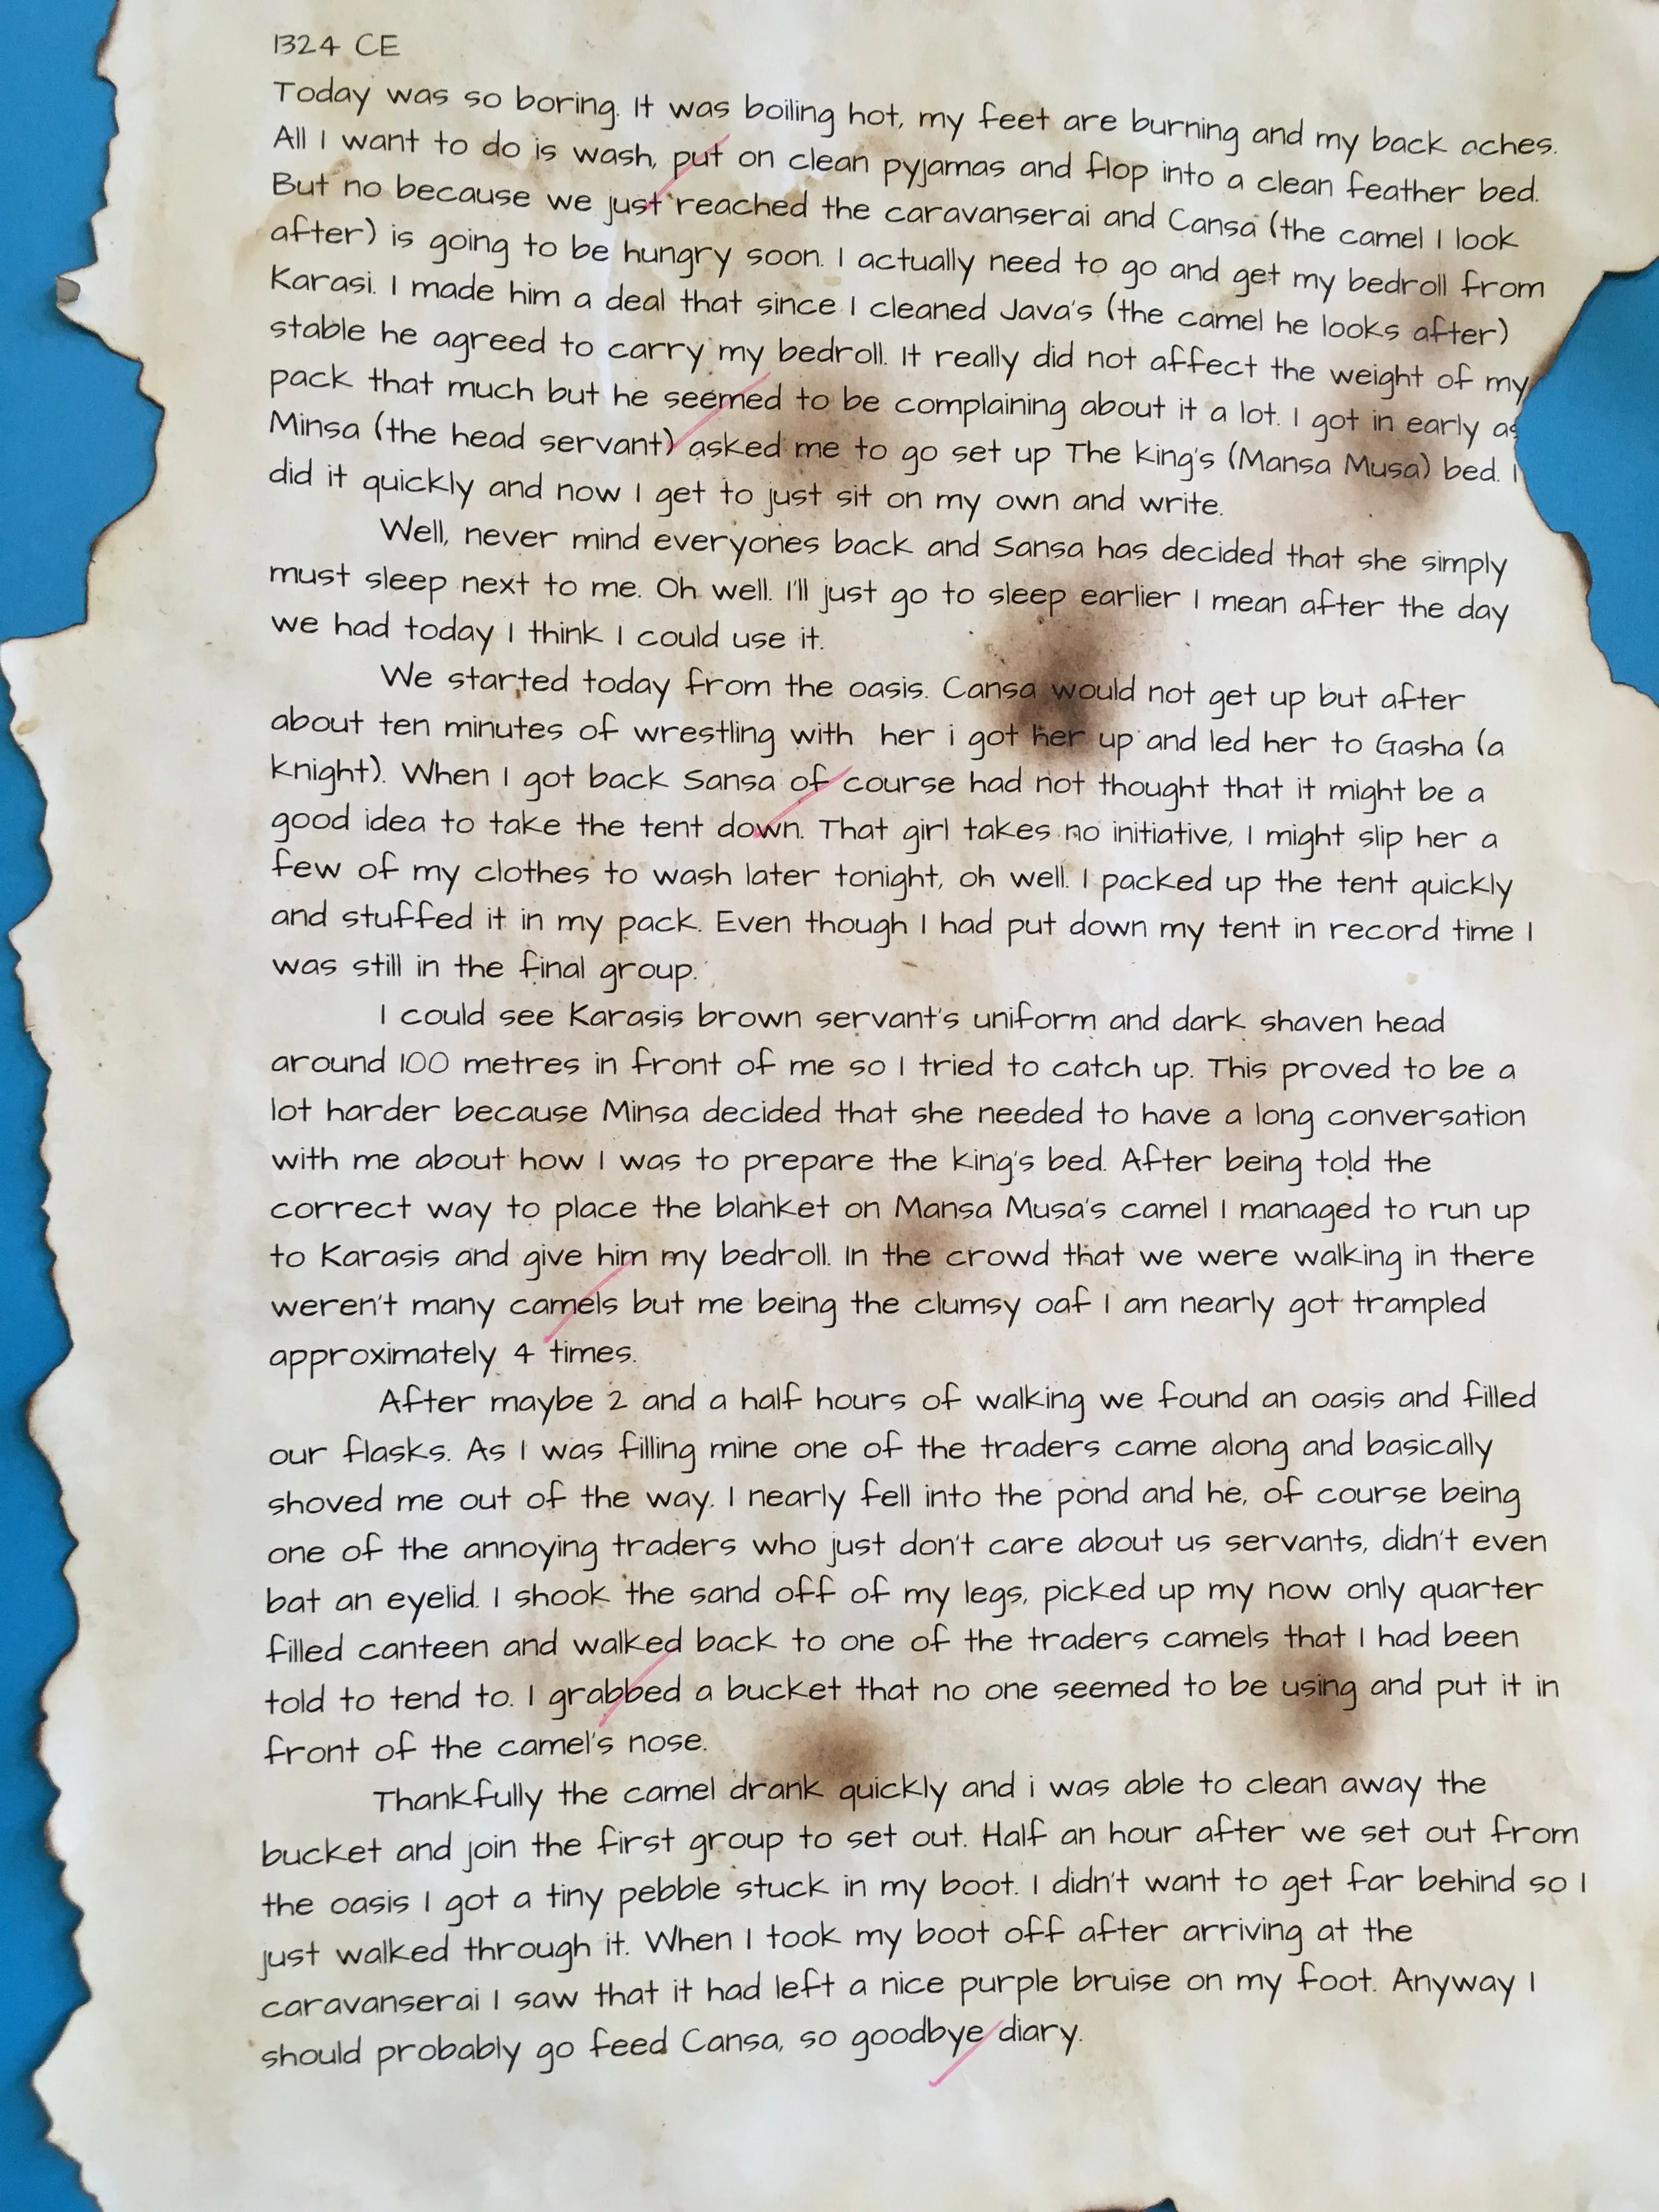 1324 CE
Today was so boring. It was boiling hot, my feet are burning and my back aches.
All I want to do is wash, put on clean pyjamas and flop into a clean feather bed.
But no because we just reached the caravanserai and Cansa (the camel I look
after) is going to be hungry soon. I actually need to go and get my bedroll from
Karasi. I made him a deal that since I cleaned Java's (the camel he looks after)
stable he agreed to carry my bedroll. It really did not affect the weight of my
pack that much but he seemed to be complaining about it a lot. I got in early as
Minsa (the head servant) asked me to go set up The king's (Mansa Musa) bed. I
did it quickly and now I get to just sit on my own and write.
Well, never mind everyones back and Sansa has decided that she simply
must sleep next to me. Oh well. I'll just go to sleep earlier I mean after the day
we had today I think I could use it.
We started today from the oasis. Cansa would not get up but after
about ten minutes of wrestling with her i got her up and led her to Gasha (a
knight). When I got back Sansa of course had not thought that it might be a
good idea to take the tent down. That girl takes no initiative, I might slip her a
few of my clothes to wash later tonight, oh well. I packed up the tent quickly
and stuffed it in my pack. Even though I had put down my tent in record time I
was still in the final group.
I could see Karasis brown servant's uniform and dark shaven head
around 100 metres in front of me so I tried to catch up. This proved to be a
lot harder because Minsa decided that she needed to have a long conversation
with me about how I was to prepare the king's bed. After being told the
correct way to place the blanket on Mansa Musa's camel I managed to run up
to Karasis and give him my bedroll. In the crowd that we were walking in there
weren't many camels but me being the clumsy oaf I am nearly got trampled
approximately 4 times.
After maybe 2 and a half hours of walking we found an oasis and filled
our flasks. As I was filling mine one of the traders came along and basically
shoved me out of the way. I nearly fell into the pond and he, of course being
one of the annoying traders who just don't care about us servants, didn't even
bat an eyelid. I shook the sand off of my legs, picked up my now only quarter
filled canteen and walked back to one of the traders camels that I had been
told to tend to. I grabbed a bucket that no one seemed to be using and put it in
front of the camel's nose.
Thankfully the camel drank quickly and i was able to clean away the
bucket and join the first group to set out. Half an hour after we set out from
the oasis I got a tiny pebble stuck in my boot. I didn't want to get far behind so I
just walked through it. When I took my boot off after arriving at the
caravanserai I saw that it had left a nice purple bruise on my foot. Anyway I
should probably go feed Cansa, so goodbye diary.